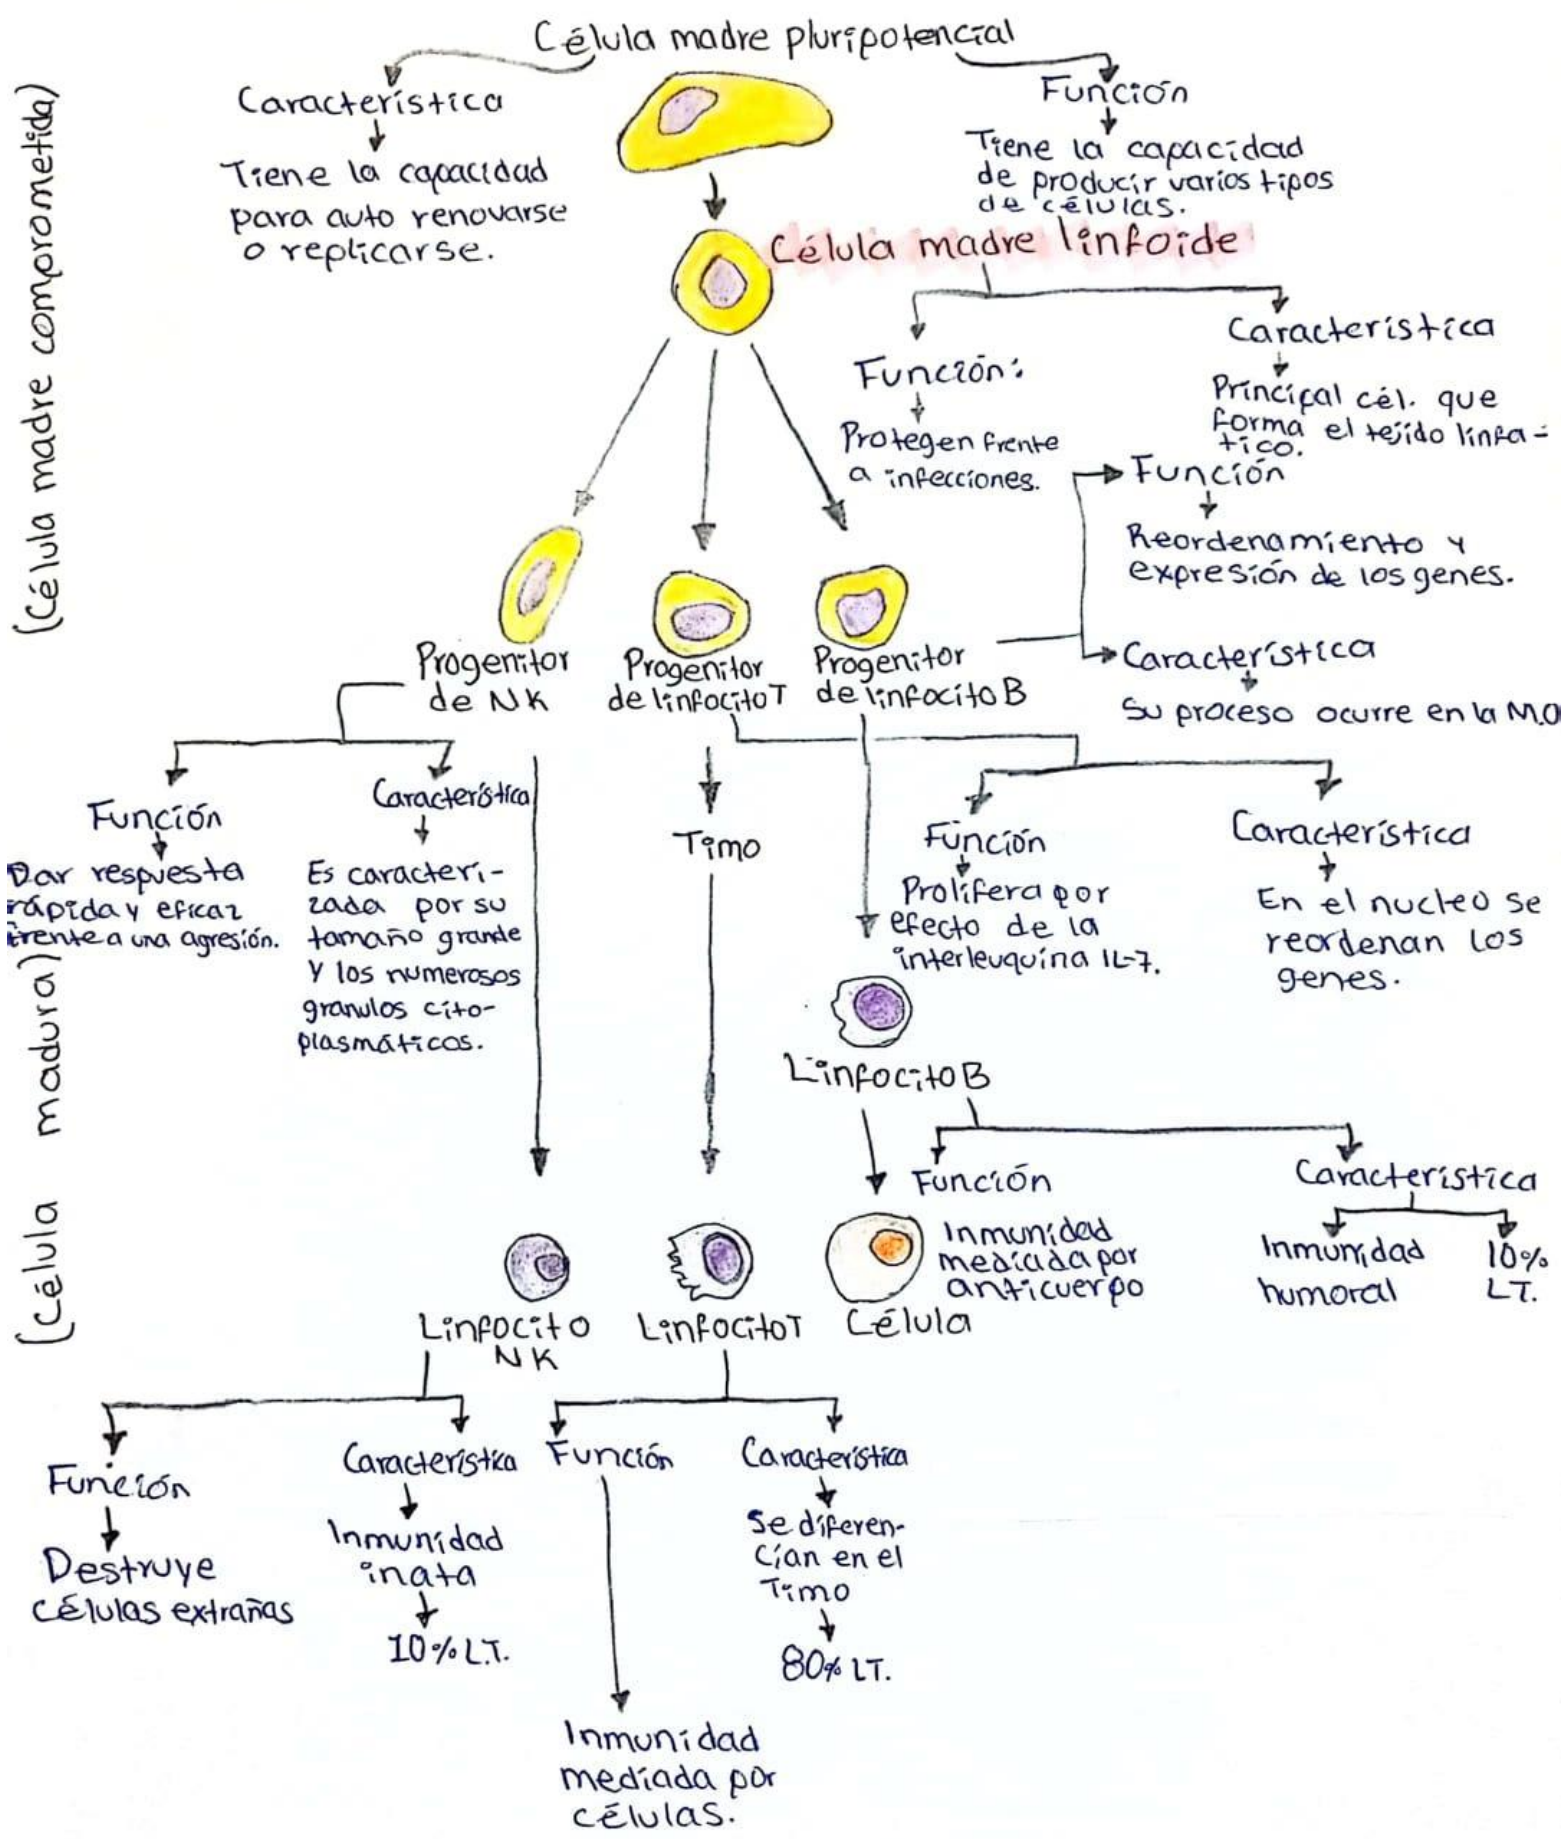 Célula madre pluripotencial
Característica
Tiene la capacidad
para auto renovarse
o replicarse.
Función
Tiene la capacidad
de producir varios tipos
de células.
(Célula madre comprometida)
Célula madre linfoide
Función:
Protegen frente
a infecciones.
Característica
Principal cél. que
forma el tejido linfa-
tico.
Progenitor
de NK
Progenitor
de linfocito T
Progenitor
de linfocito B
Función
Reordenamiento y
expresión de los genes.
Característica
Su proceso ocurre en la M.O
Función
Dar respuesta
rápida y eficaz
frente a una agresión.
Característica
Es caracteri-
zada por su
tamaño grande
y los numerosos
granulos cito-
plasmáticos.
Timo
Función
Prolifera por
efecto de la
interleuquina IL-7.
Característica
En el nucleo se
reordenan los
genes.
(Célula madura)
Linfocito B
Función
Inmunidad
mediada por
anticuerpo
Característica
Inmunidad
humoral
10%
LT.
Linfocito
NK
Linfocito T
Célula
Función
Destruye
células extrañas
Característica
Inmunidad
inata
10% L.T.
Función
Inmunidad
mediada por
células.
Característica
Se diferen-
cían en el
Timo
80% LT.